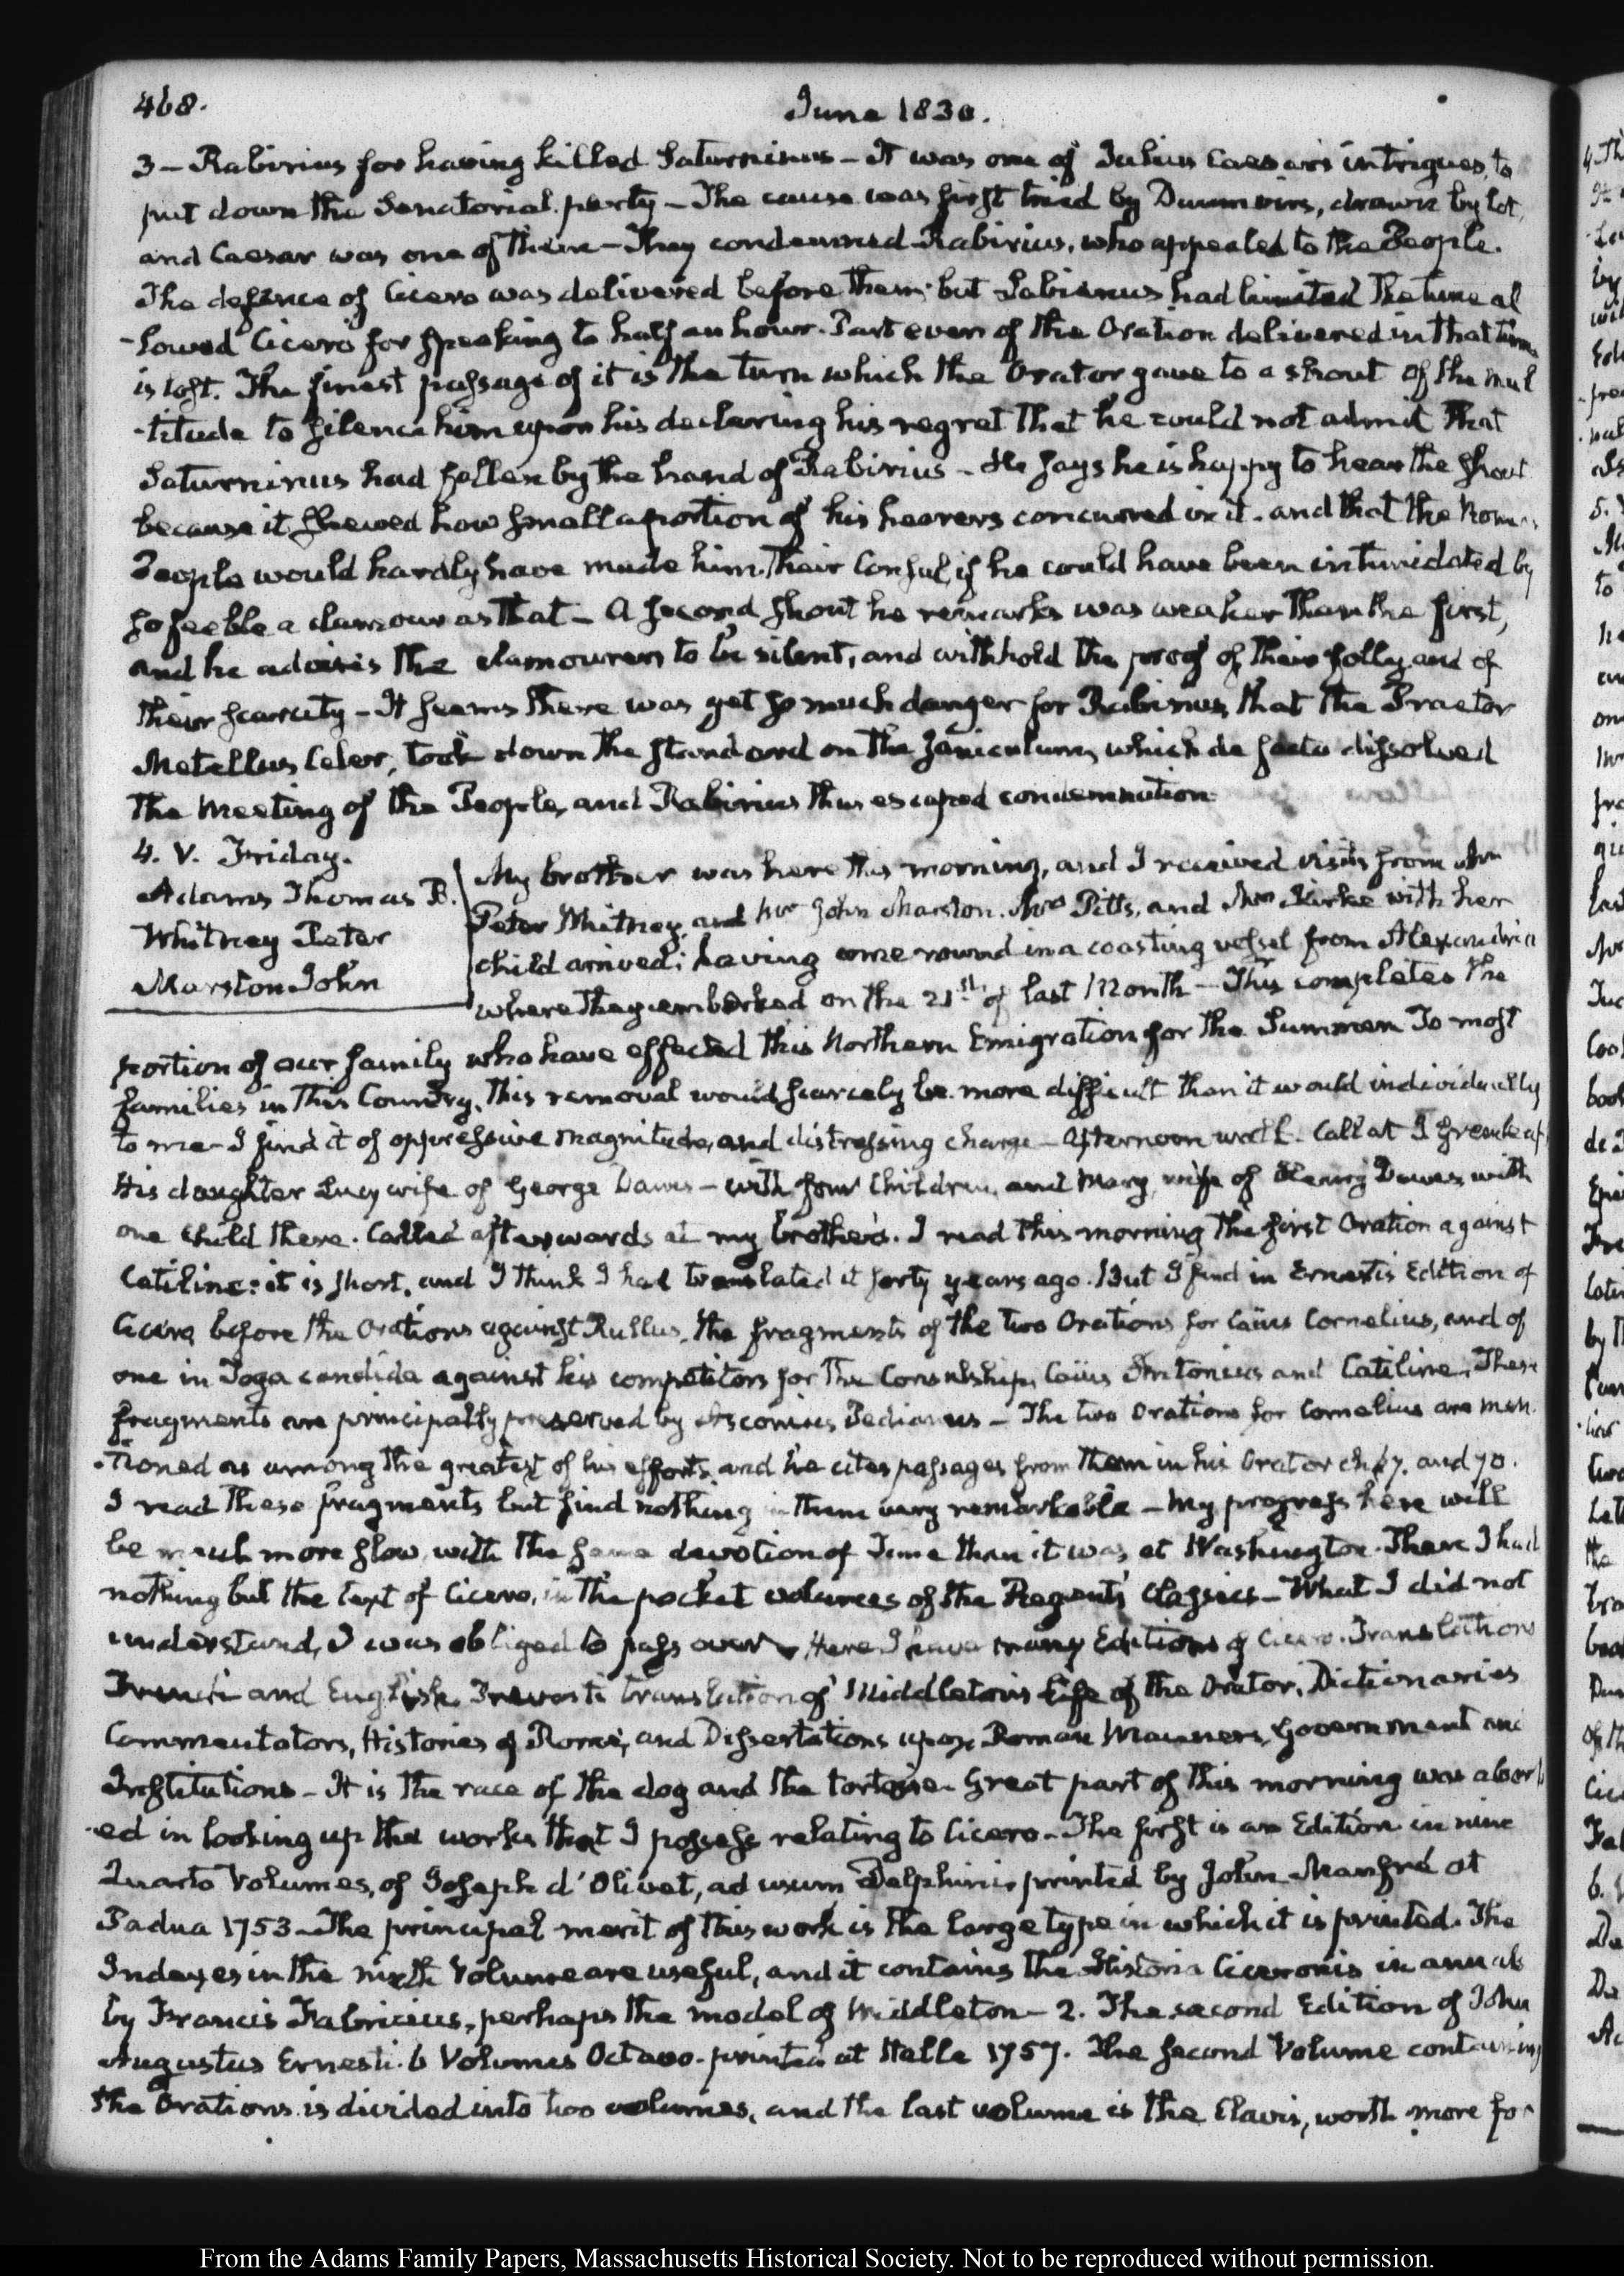 468.
June 1830.
3 – Rabirius for having killed Saturninus – It was one of Julius Caesar's intrigues, to
put down the Senatorial party – The cause was first tried by Duumvirs, drawn by lot,
and Caesar was one of them – They condemned Rabirius, who appealed to the People.
The defence of Cicero was delivered before them: but Labienus had limited the time al
-lowed Cicero for speaking to half an hour. Part even of the Oration delivered in that time
is lost. The finest passage of it is the turn which the Orator gave to a shout of the mul
-titude to silence him upon his declaring his regret that he could not admit that
Saturninus had fallen by the hand of Rabirius – He says he is happy to hear the shout
because it shewed how small a portion of his hearers concurred in it. and that the Roman
People would hardly have made him their Consul, if he could have been intimidated by
so feeble a clamour as that – A second shout he remarks was weaker than the first,
and he advises the clamourers to be silent, and withhold the proof of their folly and of
their scarcity – It seems there was yet so much danger for Rabirius, that the Praetor
Metellus Celer, took down the standard on the Janiculum, which de facto dissolved
the meeting of the People, and Rabirius thus escaped condemnation
4. V. Friday.
Adams Thomas B.
Whitney Peter
Marston John
My brother was here this morning, and I received visits from Mr
Peter Whitney, and Mr John Marston. Mrs Pitts, and Mrs Kirke with her
child arrived; having come round in a coasting vessel from Alexandria
where they embarked on the 21st of last Month – This completes the
portion of our family who have effected this Northern Emigration for the Summer. To most
families in this Country, this removal would scarcely be more difficult than it would individually
to me – I find it of oppressive magnitude, and distressing charge – Afternoon walk. Call at J Greenleaf
His daughter Lucy wife of George Dawes – with four Children, and Mary, wife of Henry Dawes with
one child there. Called afterwards at my brother's. I read this morning the first Oration against
Catiline: it is short, and I think I had translated it forty years ago. But I find in Ernesti's Edition of
Cicero before the Orations against Rullus, the fragments of the two Orations for Caius Cornelius, and of
one in Toga candida against his competitors for the Consulship, Caius Antonius and Catiline. These
fragments are principally preserved by Asconius Pedianus – The two Orations for Cornelius are men
-tioned as among the greatest of his efforts, and he cites passages from them in his Orator ch. 67. and 70.
I read these fragments but find nothing in them very remarkable – My progress here will
be much more slow, with the same devotion of Time than it was at Washington. There I had
nothing but the text of Cicero, in the pocket volumes of the Regent's Classics – What I did not
understand, I was obliged to pass over – Here I have many Editions of Cicero. Translations
French and English. Prevost's translation of Middleton's Life of the Orator, Dictionaries
Commentators, Histories of Rome, and Dissertations upon Roman Manners, Government and
Institutions – It is the race of the dog and the tortoise. Great part of this morning was absorb
-ed in looking up the works that I possess relating to Cicero – The first is an Edition in nine
Quarto Volumes, of Joseph d'Olivet, ad usum Delphini, printed by John Manfré at
Padua 1753 – The principal merit of this work is the large type in which it is printed. The
Indexes in the ninth Volume are useful, and it contains the Historia Ciceronis in annals
by Francis Fabricius, perhaps the model of Middleton – 2. The second Edition of John
Augustus Ernesti. 6 Volumes Octavo. printed at Halle 1757. The second Volume containing
the Orations is divided into two volumes, and the last volume is the Clavis, worth more for
From the Adams Family Papers, Massachusetts Historical Society. Not to be reproduced without permission.